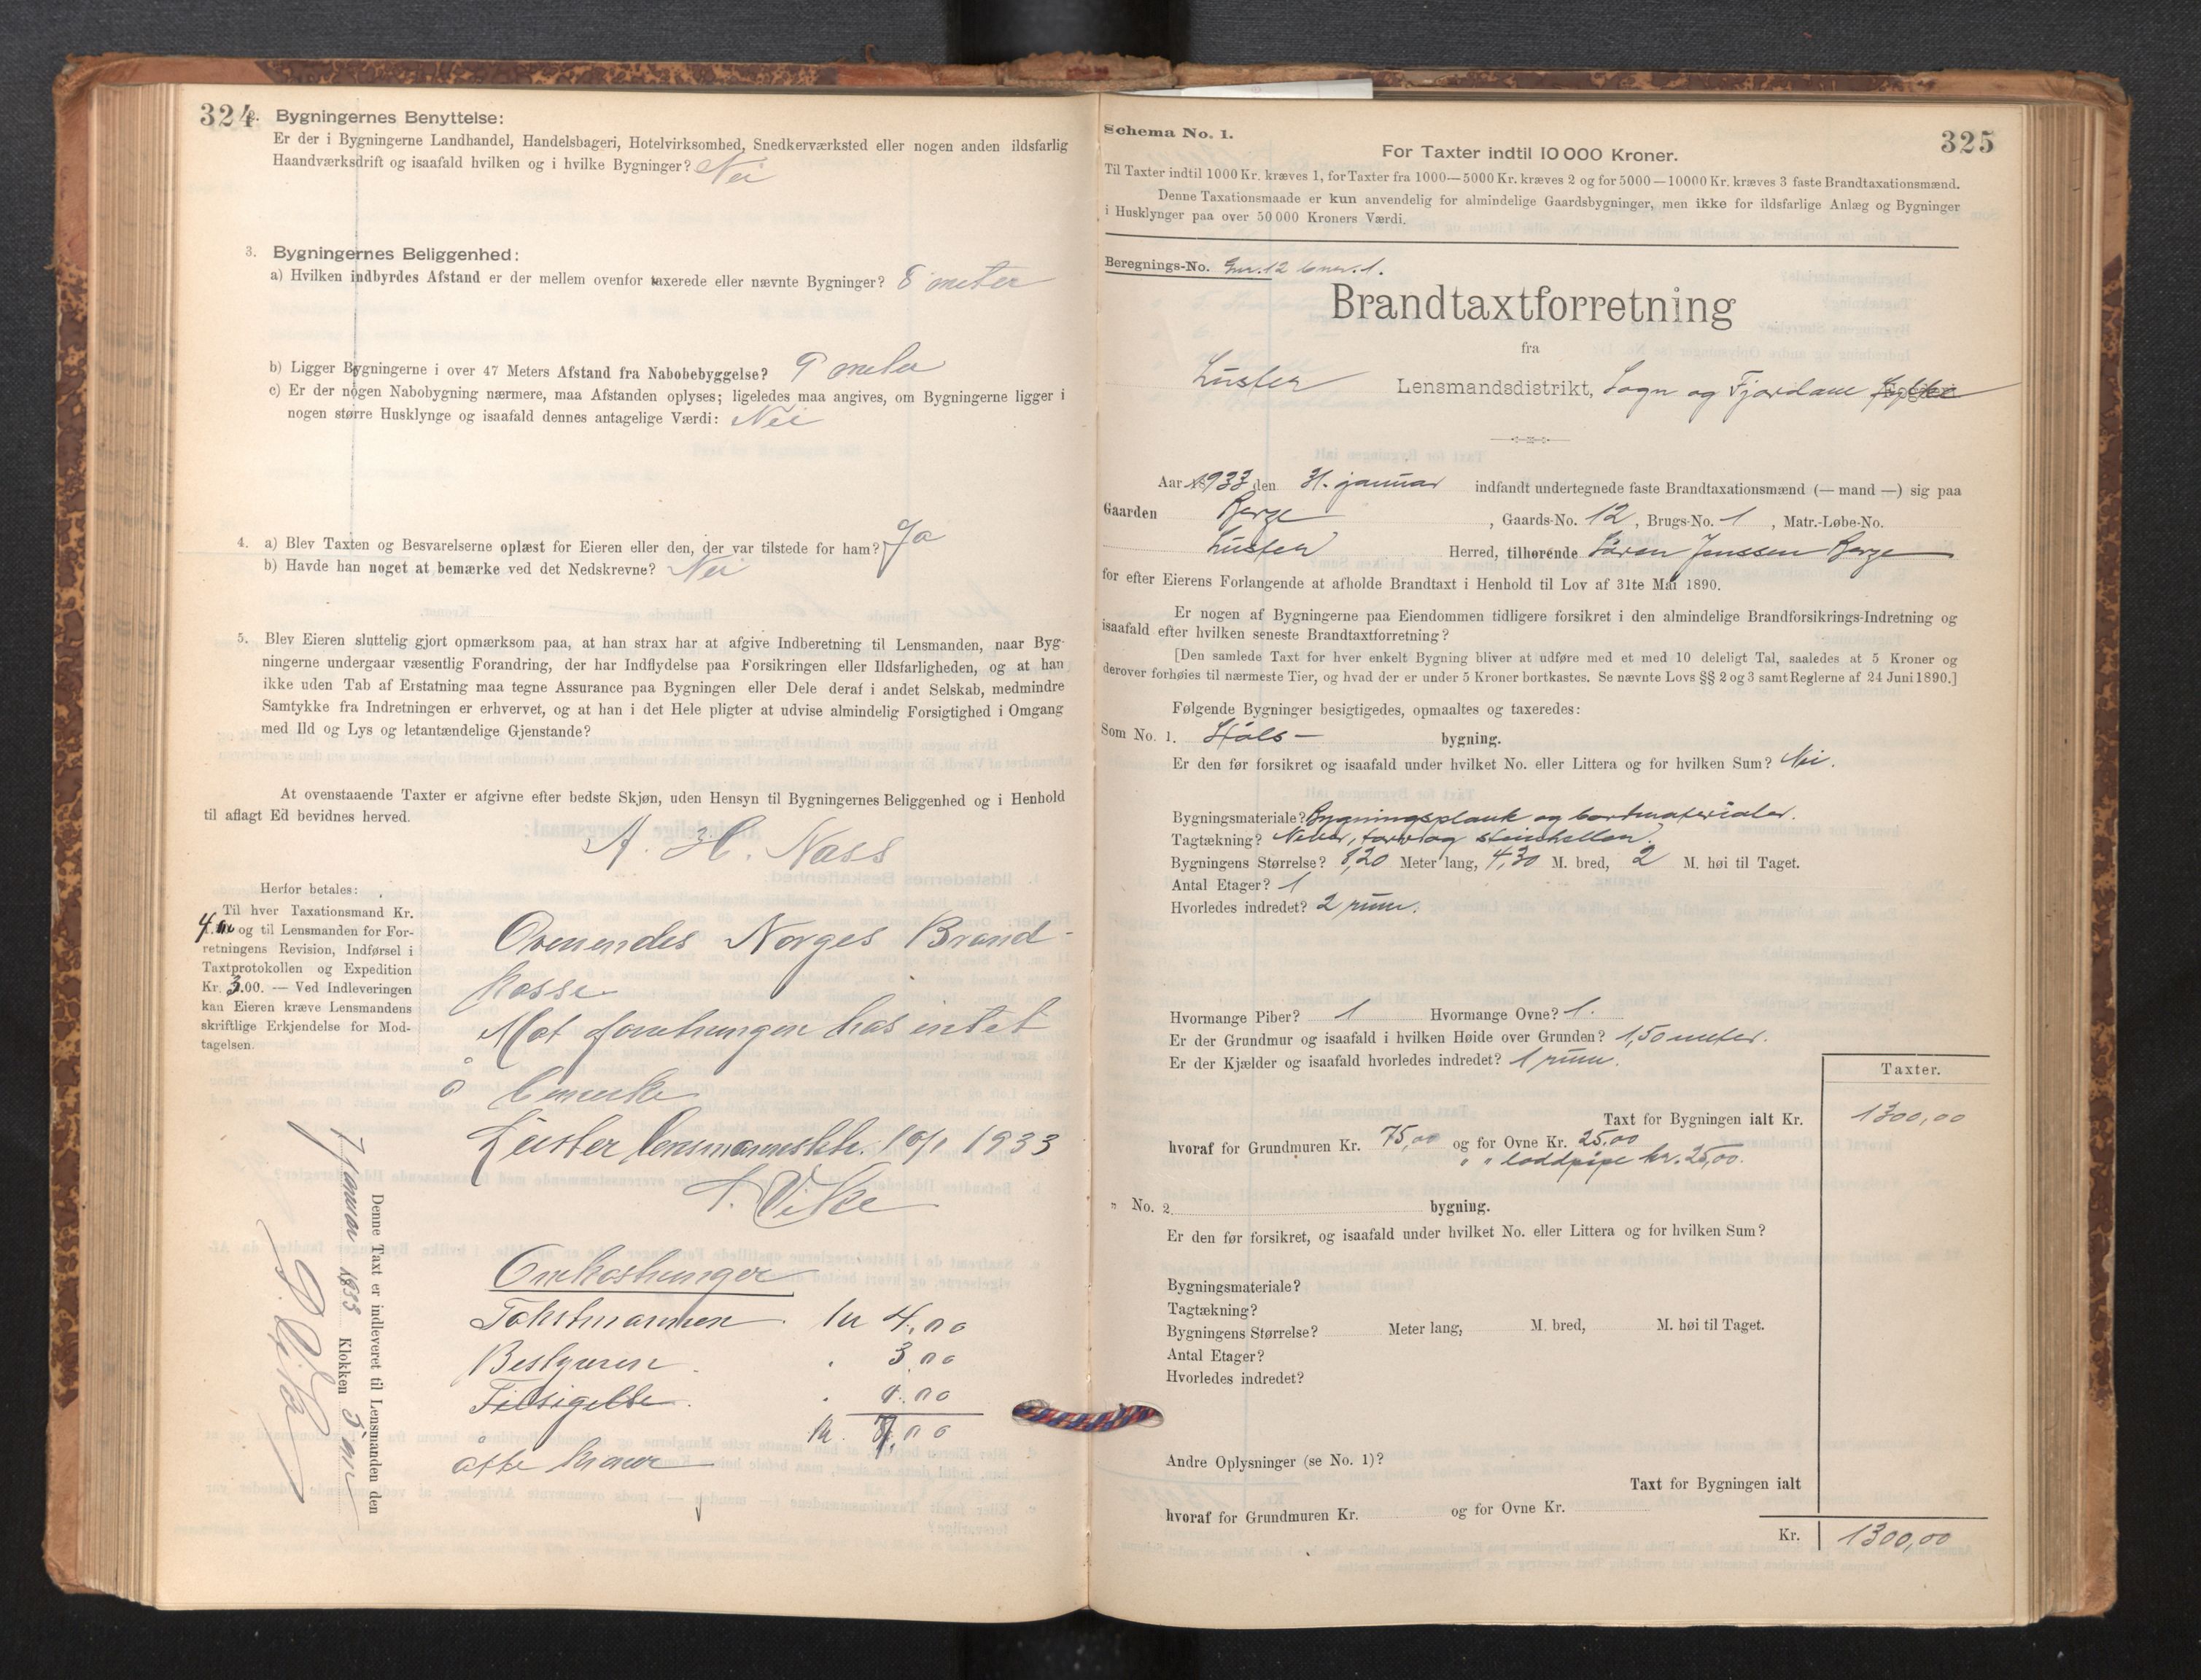 324
2. Bygningernes Benyttelse:
Er der i Bygningerne Landhandel, Handelsbageri, Hotelvirksomhed, Snedkerværksted eller nogen anden ildsfarlig
Haandværksdrift og isaafald hvilken og i hvilke Bygninger? Nei
3. Bygningernes Beliggenhed:
a) Hvilken indbyrdes Afstand er der mellem ovenfor taxerede eller nævnte Bygninger? 8 meter
b) Ligger Bygningerne i over 47 Meters Afstand fra Nabobebyggelse? 9 meter
c) Er der nogen Nabobygning nærmere, maa Afstanden oplyses; ligeledes maa angives, om Bygningerne ligger i
nogen større Husklynge og isaafald dennes antagelige Værdi: Nei
4. a) Blev Taxten og Besvarelserne oplæst for Eieren eller den, der var tilstede for ham? Ja
b) Havde han noget at bemærke ved det Nedskrevne? Nei
5. Blev Eieren sluttelig gjort opmærksom paa, at han strax har at afgive Indberetning til Lensmanden, naar Byg-
ningerne undergaar væsentlig Forandring, der har Indflydelse paa Forsikringen eller Ildsfarligheden, og at han
ikke uden Tab af Erstatning maa tegne Assurance paa Bygningen eller Dele deraf i andet Selskab, medmindre
Samtykke fra Indretningen er erhvervet, og at han i det Hele pligter at udvise almindelig Forsigtighed i Omgang
med Ild og Lys og letantændelige Gjenstande?
At ovenstaaende Taxter er afgivne efter bedste Skjøn, uden Hensyn til Bygningernes Beliggenhed og i Henhold
til aflagt Ed bevidnes herved.
A. H. Næss
Herfor betales:
Til hver Taxationsmand Kr.
4.00 og til Lensmanden for For-
retningens Revision, Indførsel i
Taxtprotokollen og Expedition
Kr. 3.00. — Ved Indleveringen
kan Eieren kræve Lensmandens
skriftlige Erkjendelse for Mod-
tagelsen.
Norges Brand-
kasse
Mot forretningen has intet
å bemerke
Luster lensmannsktr. 10/1 1933
S. Vike
Omkostninger
Takstmannen kr 4.00
Bestyreren " 3.00
" 1.00
kr. 8,00
åtte kroner
Denne Taxt er indleveret til Lensmanden den
7 januar 1933 Klokken 5 em
S. Vike
325
Schema No. 1.
For Taxter indtil 10 000 Kroner.
Til Taxter indtil 1000 Kr. kræves 1, for Taxter fra 1000—5000 Kr. kræves 2 og for 5000—10000 Kr. kræves 3 faste Brandtaxationsmænd.
Denne Taxationsmaade er kun anvendelig for almindelige Gaardsbygninger, men ikke for ildsfarlige Anlæg og Bygninger
i Husklynger paa over 50 000 Kroners Værdi.
Beregnings-No. Gnr. 12 bnr. 1.
Brandtaxtforretning
fra
Luster Lensmandsdistrikt, Sogn og Fjordane fylke
Aar 1933 den 4. januar indfandt undertegnede faste Brandtaxationsmænd (— mand —) sig paa
Gaarden Berge, Gaards-No. 12, Brugs-No. 1, Matr.-Løbe-No.
Luster Herred, tilhørende Søren Jenssen Berge
for efter Eierens Forlangende at afholde Brandtaxt i Henhold til Lov af 31te Mai 1890.
Er nogen af Bygningerne paa Eiendommen tidligere forsikret i den almindelige Brandforsikrings-Indretning og
isaafald efter hvilken seneste Brandtaxtforretning?
[Den samlede Taxt for hver enkelt Bygning bliver at udføre med et med 10 deleligt Tal, saaledes at 5 Kroner og
derover forhøies til nærmeste Tier, og hvad der er under 5 Kroner bortkastes. Se nævnte Lovs §§ 2 og 3 samt Reglerne af 24 Juni 1890.]
Følgende Bygninger besigtigedes, opmaaltes og taxeredes:
Som No. 1. Støls- bygning.
Er den før forsikret og isaafald under hvilket No. eller Littera og for hvilken Sum? Nei.
Bygningsmateriale? Bygningsplank og bordmaterialer.
Tagtækning? Never, torv og steinhellen.
Bygningens Størrelse? 8,20 Meter lang, 4,30 M. bred, 2 M. høi til Taget.
Antal Etager? 1
Hvorledes indredet? 2 rum.
Hvormange Piber? 1 Hvormange Ovne? 1.
Er der Grundmur og isaafald i hvilken Høide over Grunden? 1,50 meter.
Er der Kjælder og isaafald hvorledes indredet? 1 rum.
Taxter.
Taxt for Bygningen ialt Kr. 1300,00
hvoraf for Grundmuren Kr. 75,00 og for Ovne Kr. 25,00
" " loddpipe kr. 25,00.
" No. 2 bygning.
Er den før forsikret, og isaafald under hvilket No. eller Littera og for hvilken Sum?
Bygningsmateriale?
Tagtækning?
Bygningens Størrelse? Meter lang, M. bred, M. høi til Taget.
Antal Etager?
Hvorledes indredet?
Andre Oplysninger (se No. 1)?
Taxt for Bygningen ialt
hvoraf for Grundmuren Kr. og for Ovne Kr.
Kr. 1300,00